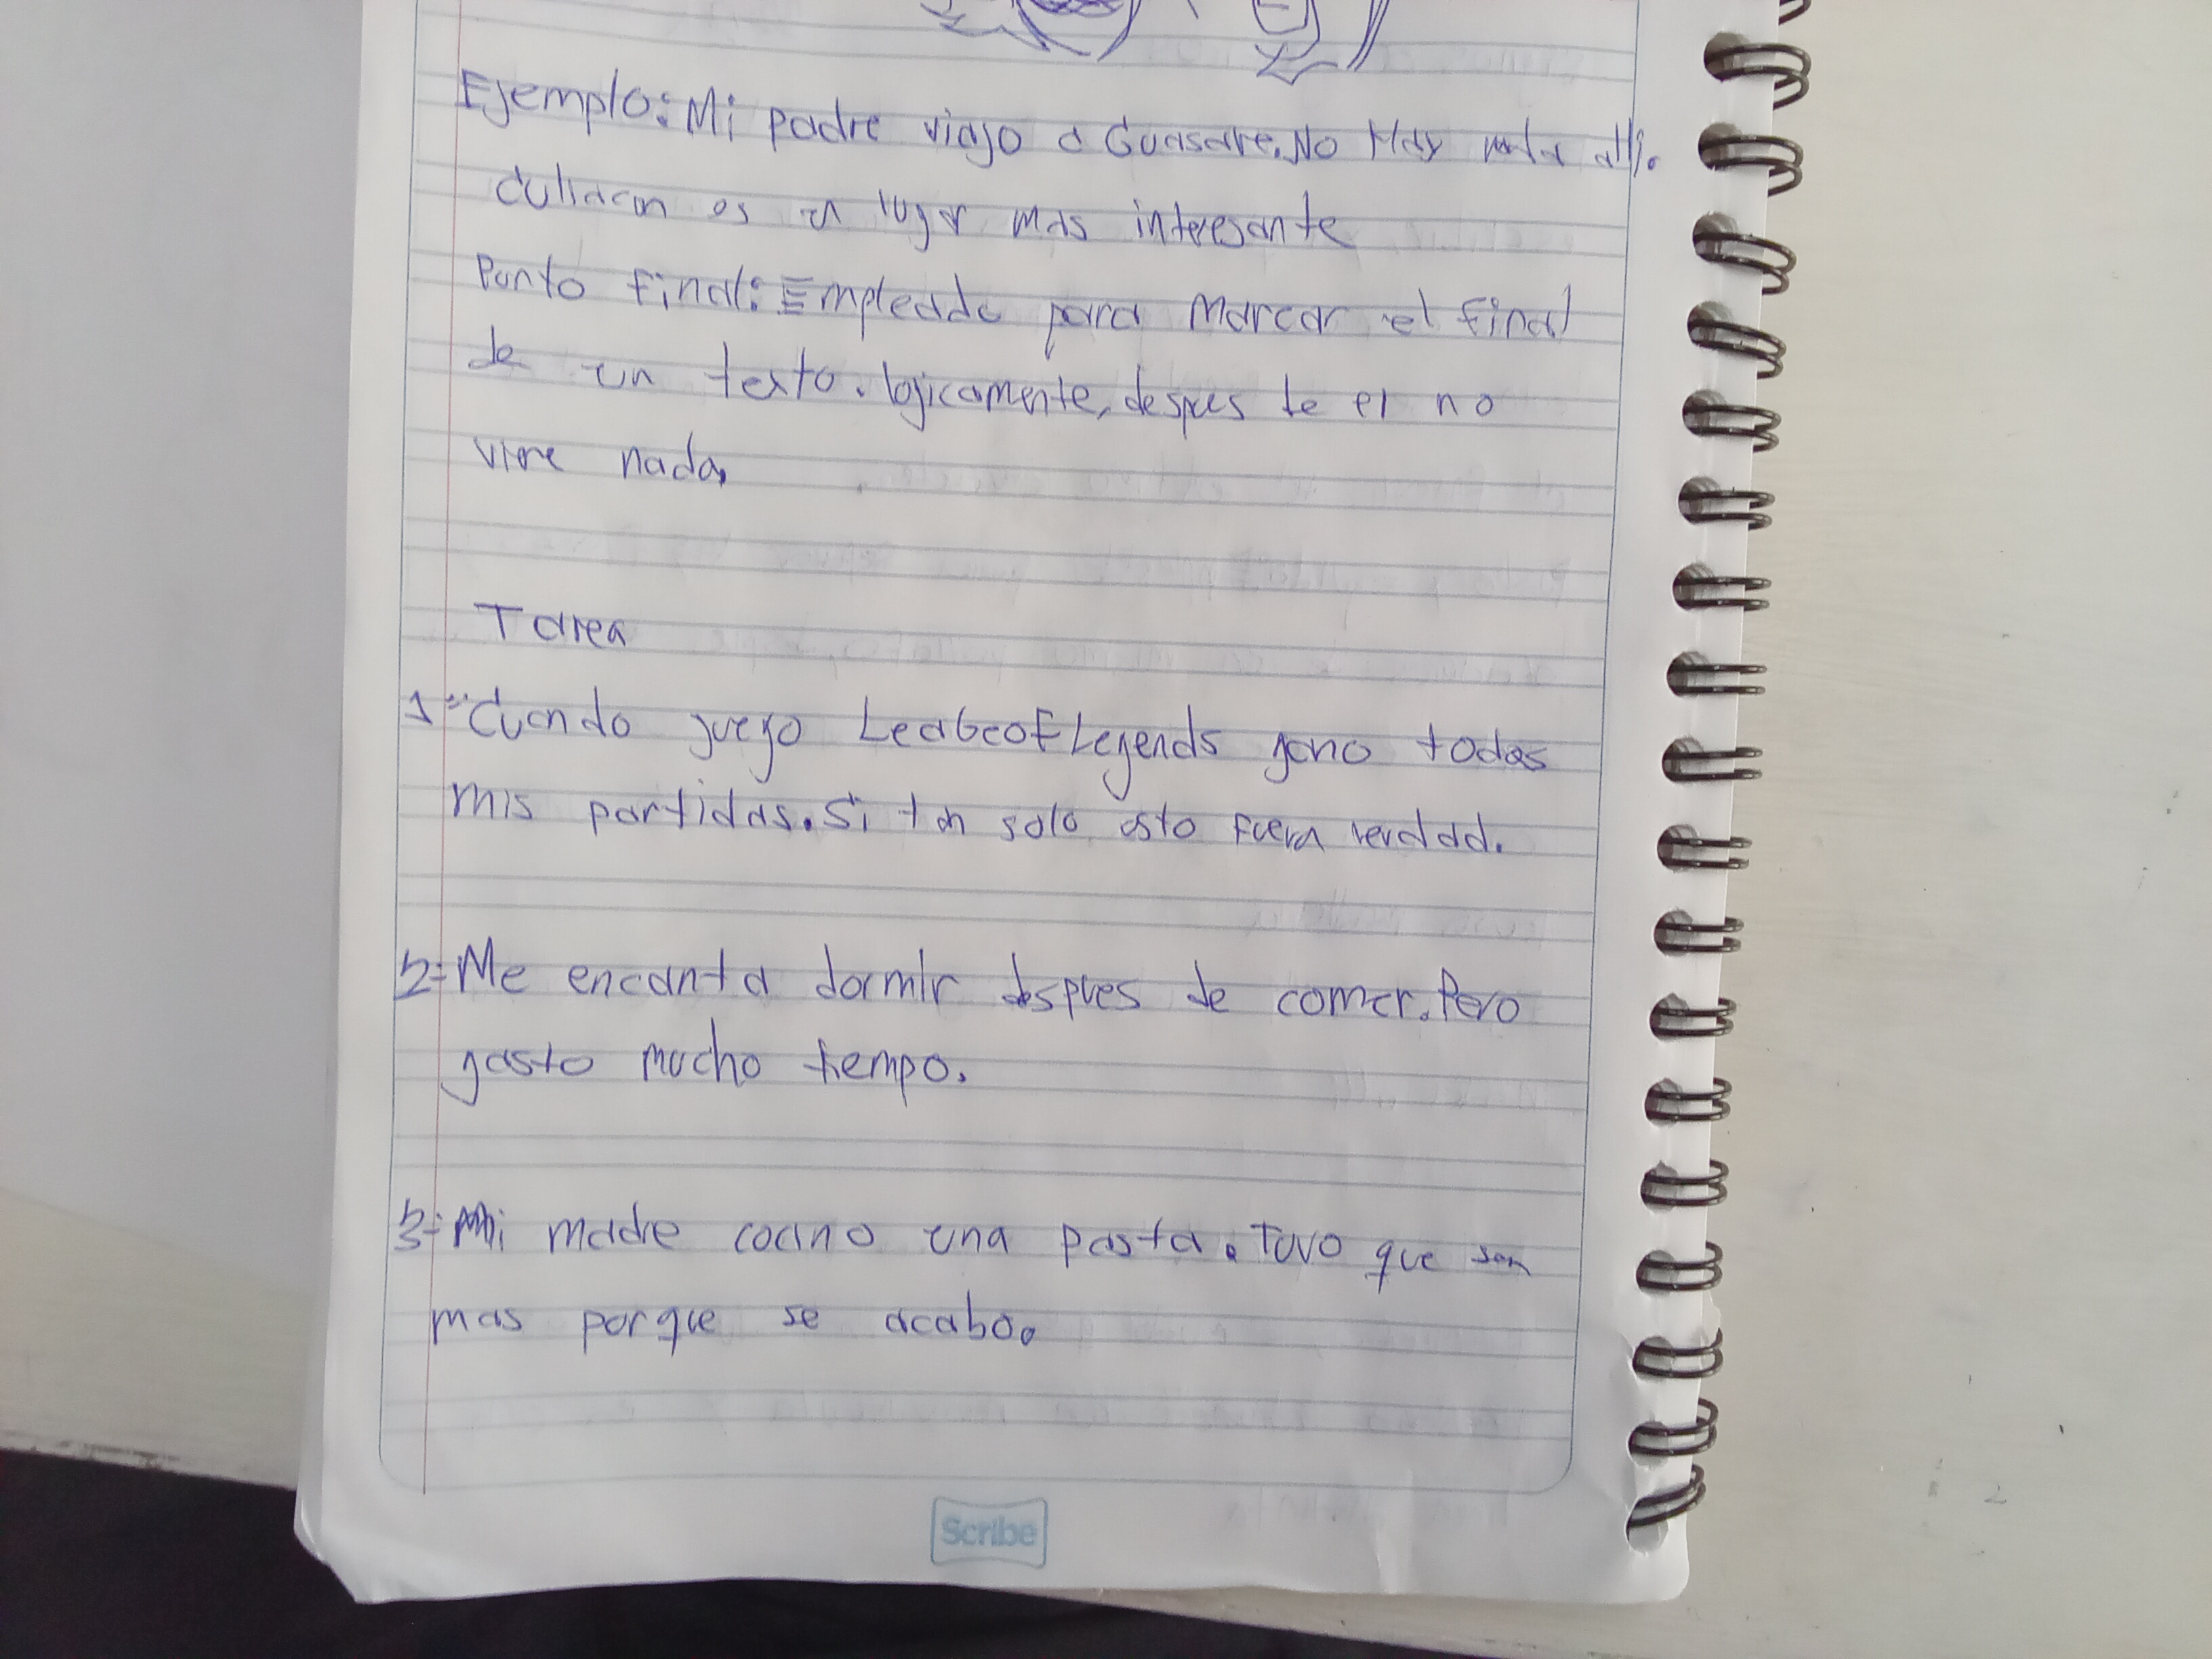 Ejemplo: Mi padre viajo a Guasave. No Hay nada alli.
Culiacan es un lugar mas interesante
Punto final: Empleado para Marcar el final
de un texto. logicamente, despues de el no
viene nada,
Tarea
1- Cuando juego LeageofLegends gano todas
mis partidas. Si tan solo esto fuera verdad.
2- Me encanta dormir despues de comer. Pero
gasto mucho tiempo.
3- Mi madre cocino una pasta. Tuvo que
mas porque se acabo.
Scribe